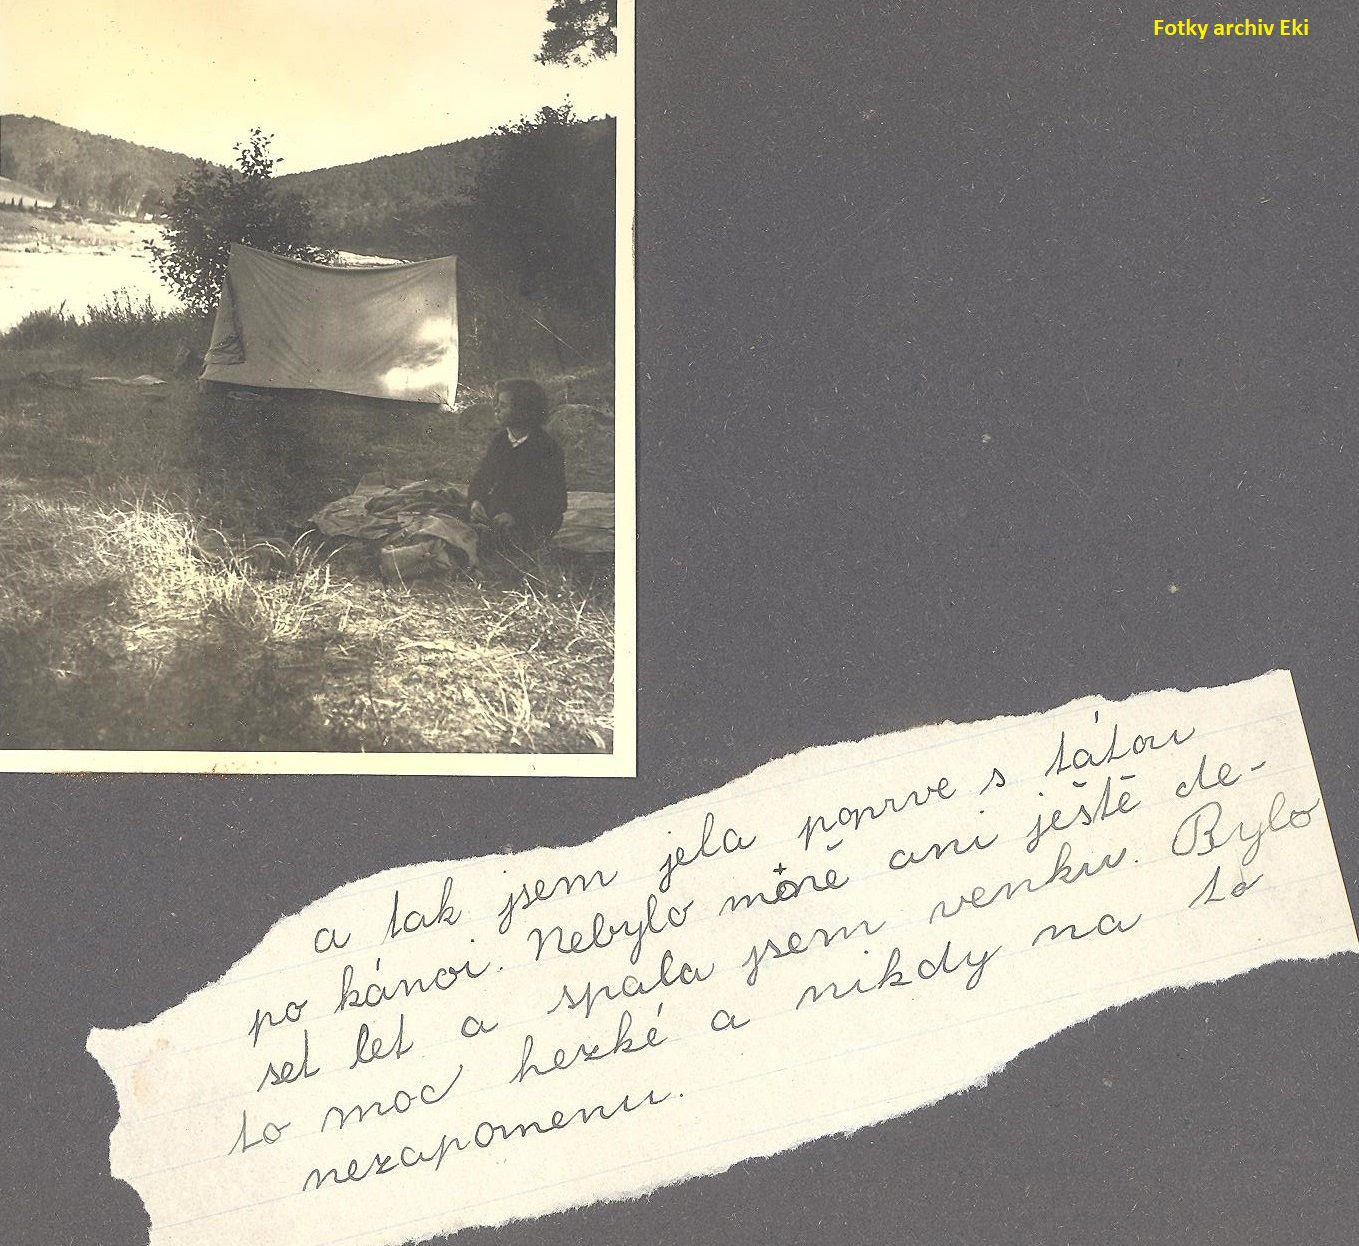 Fotky archiv Eki
a tak jsem jela poprve s tátou
po kánoi. Nebylo mně ani ještě de-
set let a spala jsem venku. Bylo
to moc hezké a nikdy na to
nezapomenu.